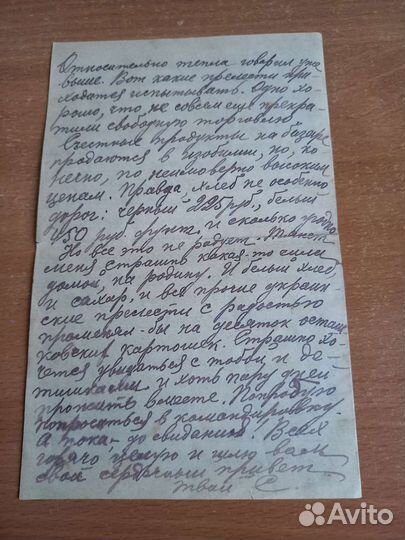 Относительно тепла говорил уже
выше. Вот какие прелести при-
ходится испытывать. Одно хо-
рошо, что не совсем еще прекра-
тили свободную торговлю.
Съестные продукты на базаре
продаются в изобилии, но, ко
нечно, по неимоверно высоким
ценам. Правда, хлеб не особенно
дорог: черный 225 руб., белый
450 руб. фунт, и сколько угодно.
Но все это не радует. Тянет
меня страшно какая-то сила
домой, на родину. И белый хлеб
и сахар, и все прочие украин-
ские прелести с радостью
променял-бы на десяток осташ
ковских карточек. Страшно хо-
чется увидаться с тобой и де-
тишками и хоть пару дней
прожить вместе. Попробую
попроситься в командировку.
А пока - до свидания! Всех
горячо целую и шлю вам
свой сердечный привет.
Твой С.
Avito